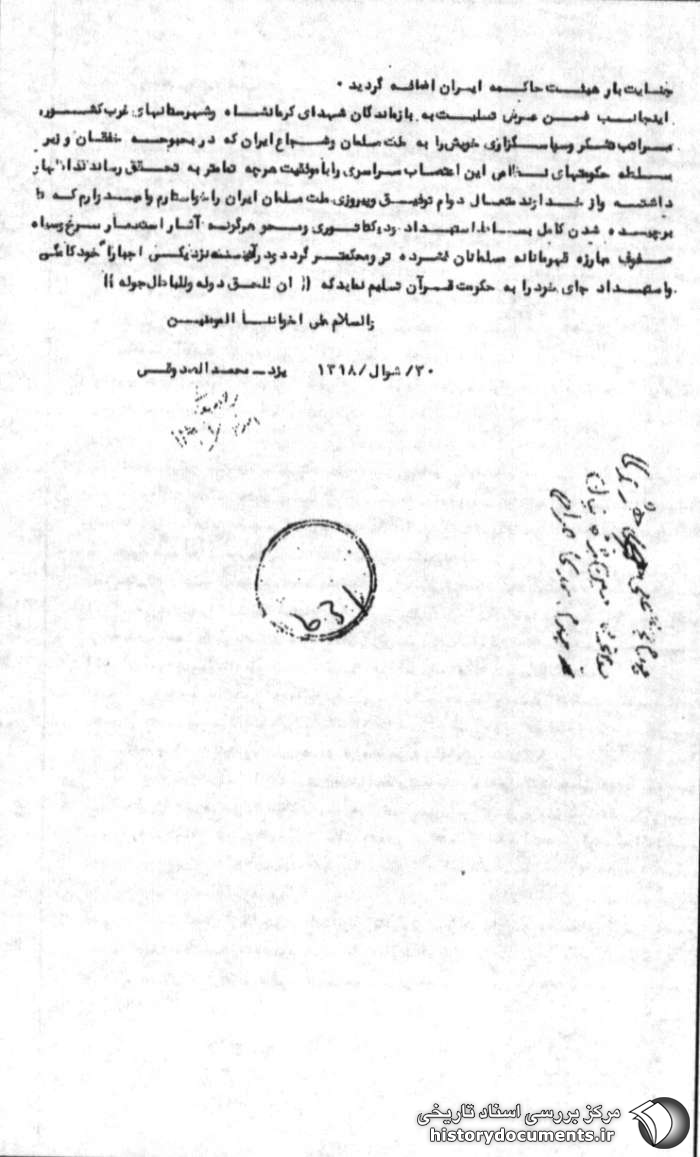 جنایت بار هیئت حاکمه ایران اضافه گردید ۰
اینجانب ضمن عرض تسلیت به بازماندگان شهدای کرمانشاه وشهرستانهای غرب کشور،
مراتب تشکر وسپاسگزاری خویش را به ملت مسلمان وشجاع ایران که در بحبوحه خفقان و زیر
سلطه حکومتهای نظامی این اعتصاب سراسری را با موفقیت هرچه تمامتر به تحقق رساندند اظهار
داشته واز خداوند متعال دوام توفیق وپیروزی ملت مسلمان ایران را خواستارم وامیدوارم که تا
برچیده شدن کامل بساط استبداد ودیکتاتوری ومحو هرگونه آثار استعمار سرخ وسیاه
صفوف مبارزه قهرمانانه مسلمانان فشرده تر ومحکمتر گردد ودر آینده نزدیکی اجبارا" خودکامگی
واستبداد جای خود را به حکومت قرآن تسلیم نماید که (( ان للحق دوله وللباطل جوله ))
والسلام علی اخواننا المومنین
۳۰/ شوال/۱۳۹۸ یزد ـ محمد صدوقی
۶۳۹
مرکز بررسی اسناد تاریخی
historydocuments.ir